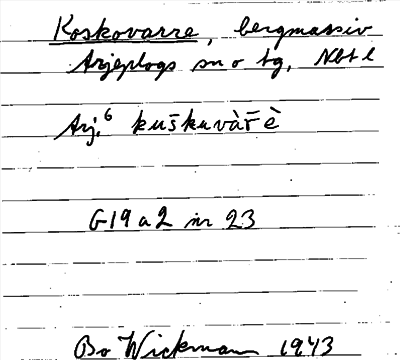 Koskovarre, bergmassiv
Arjeplogs sn o tg, Nbt l
Arj.⁶ kuškuvàr̄è
G19 a 2 nr 23
Bo Wickmann 1943